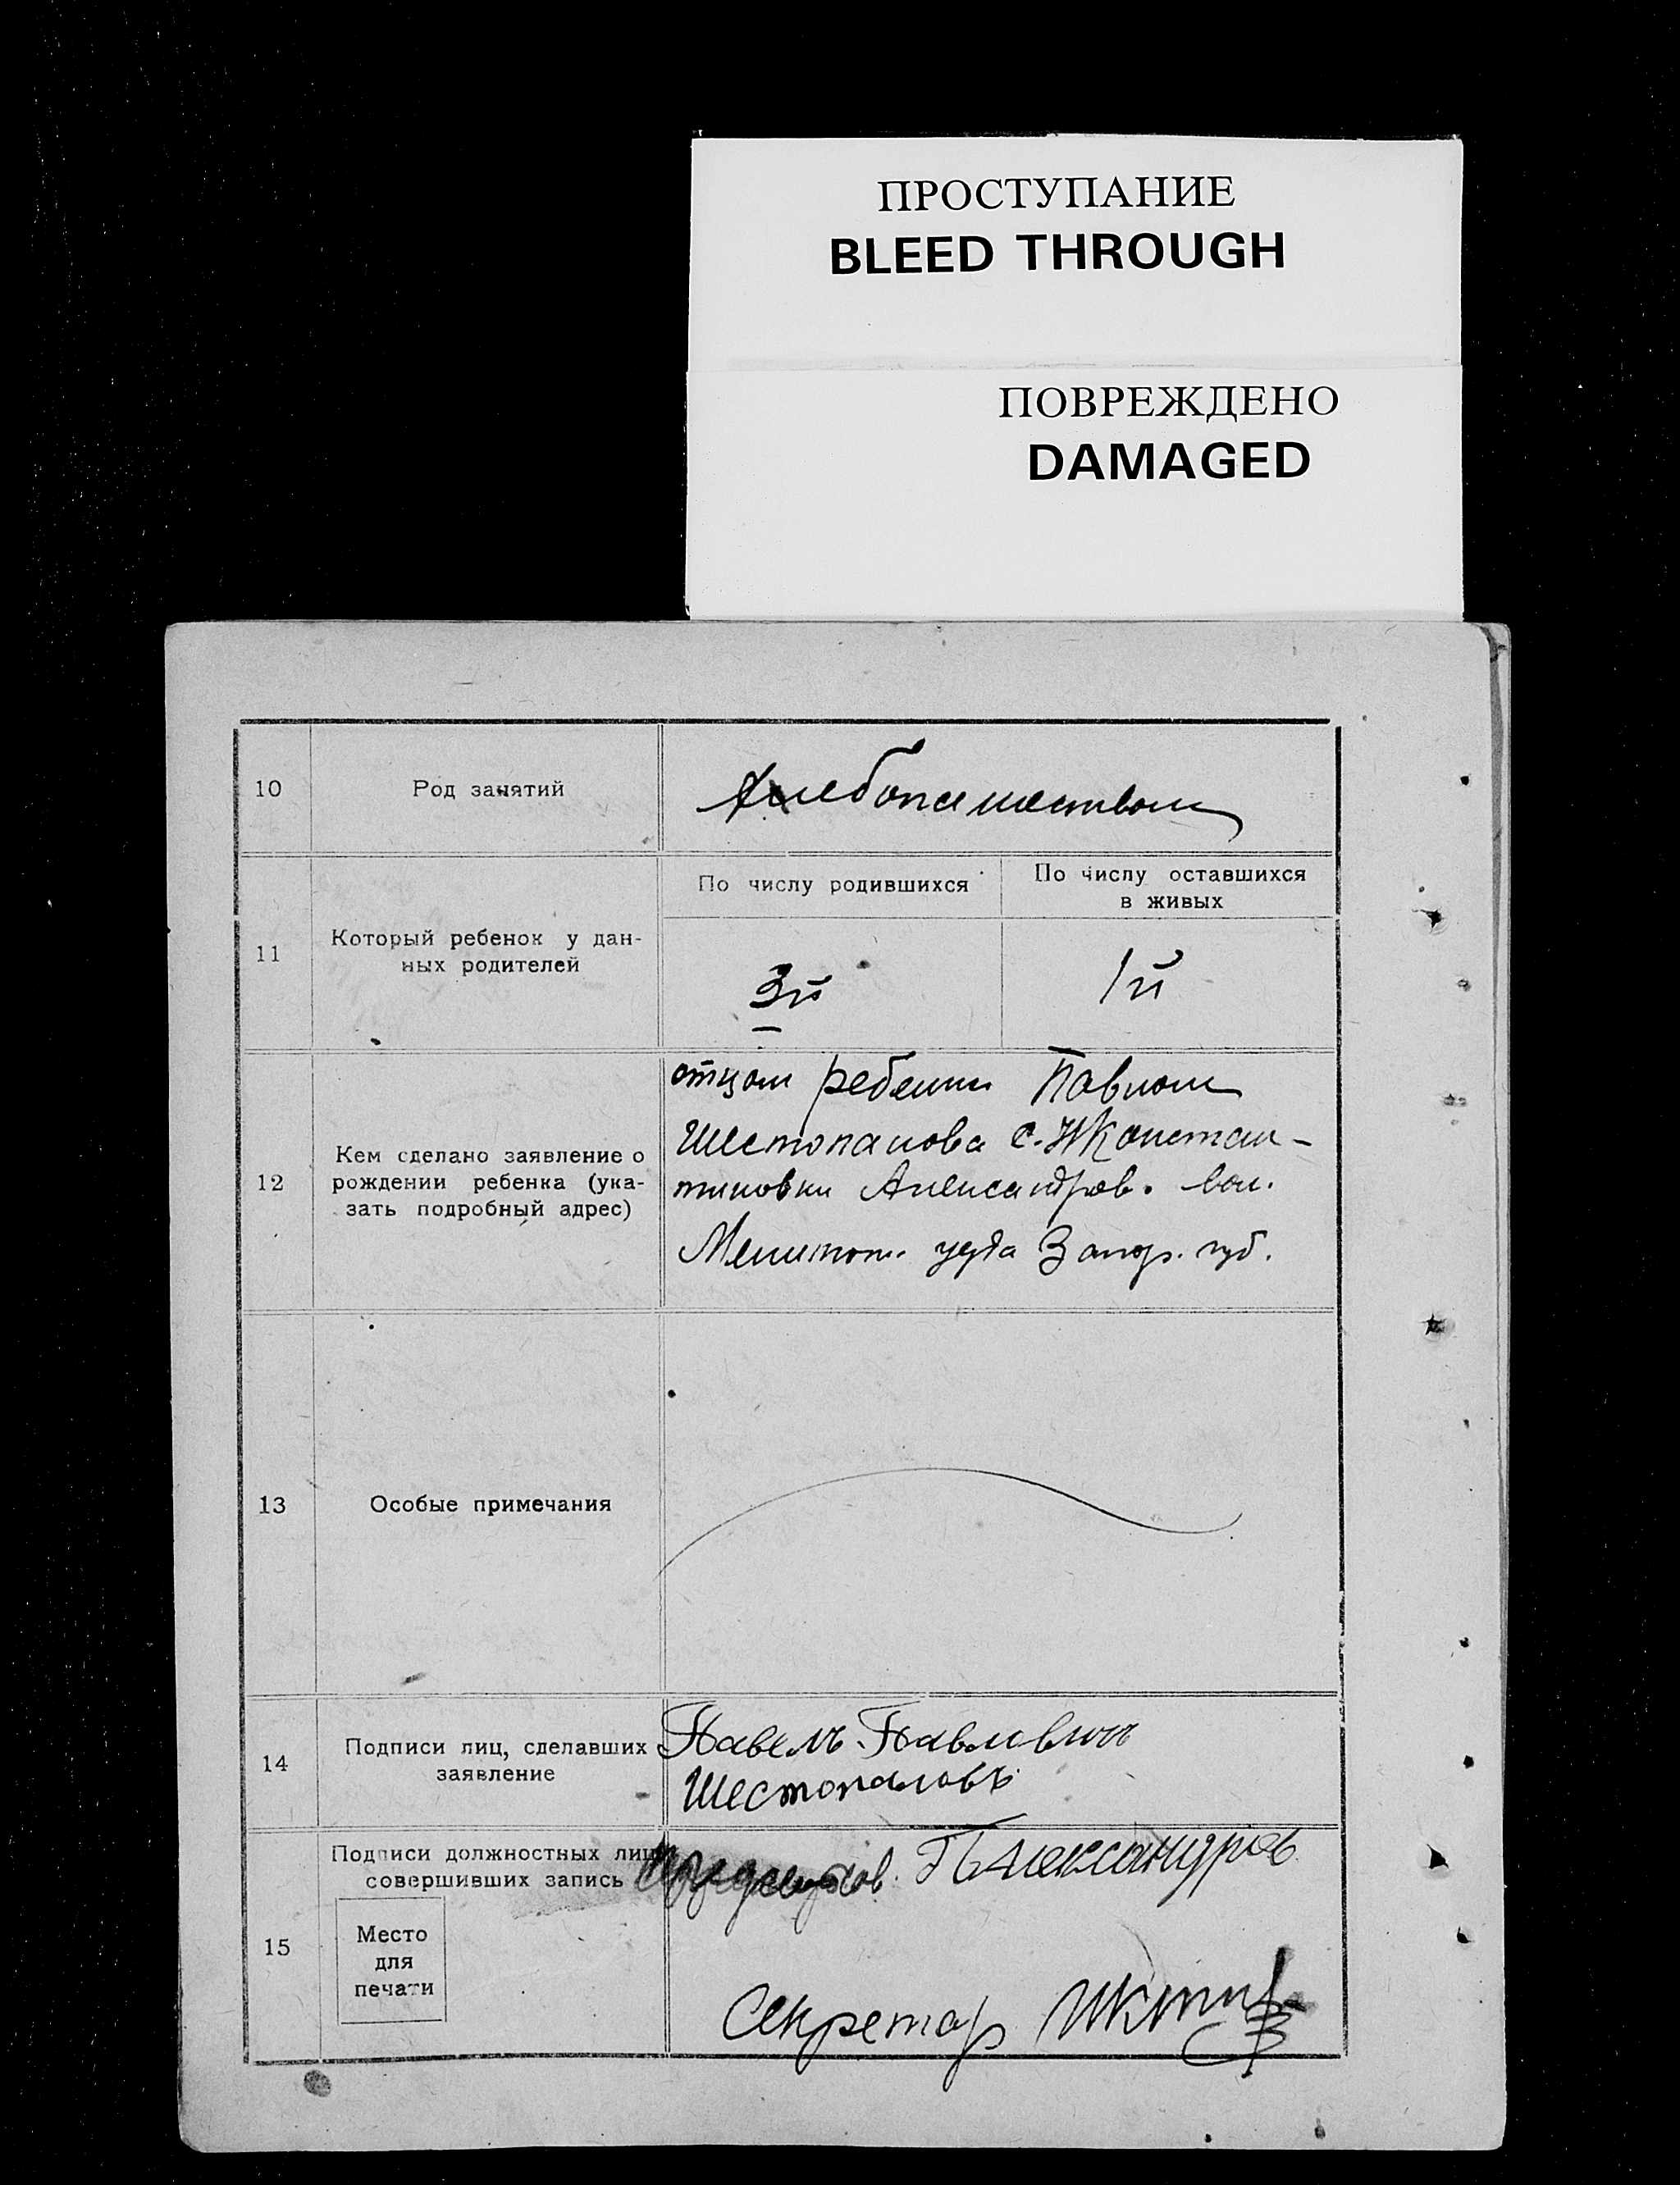 ПРОСТУПАНИЕ
BLEED THROUGH
ПОВРЕЖДЕНО
DAMAGED
10
Род занятий
Хлебопашеством
11
Который ребенок у дан-
ных родителей
По числу родившихся
По числу оставшихся
в живых
3й
1й
12
Кем сделано заявление о
рождении ребенка (ука-
зать подробный адрес)
отцом ребенка Павлом
Шестопалова с. НКонстан-
тиновки Александров. вол.
Мелитоп. уезда Запор. губ.
13
Особые примечания
14
Подписи лиц, сделавших
заявление
Павелъ Павловичъ
Шестопаловъ
15
Подписи должностных лиц
совершивших запись
Место
для
печати
ПАлександров
Секретар